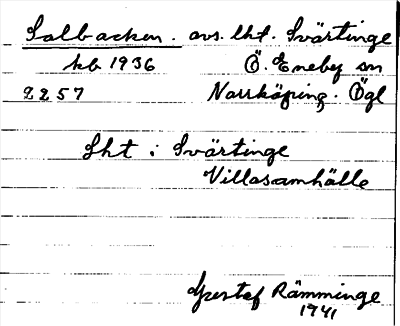 Solbacken. avs. lht. Svärtinge
kb 1936 Ö. Eneby sn
2257 Norrköping. Ögl
Lht i Svärtinge
Villasamhälle
Gustaf Rämminge
1941